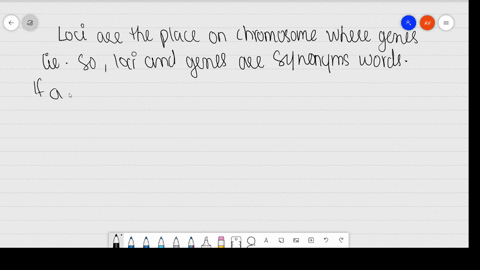 Loci are the place on chromosome where genes
lie. So, loci and genes are synonyms words.
If a